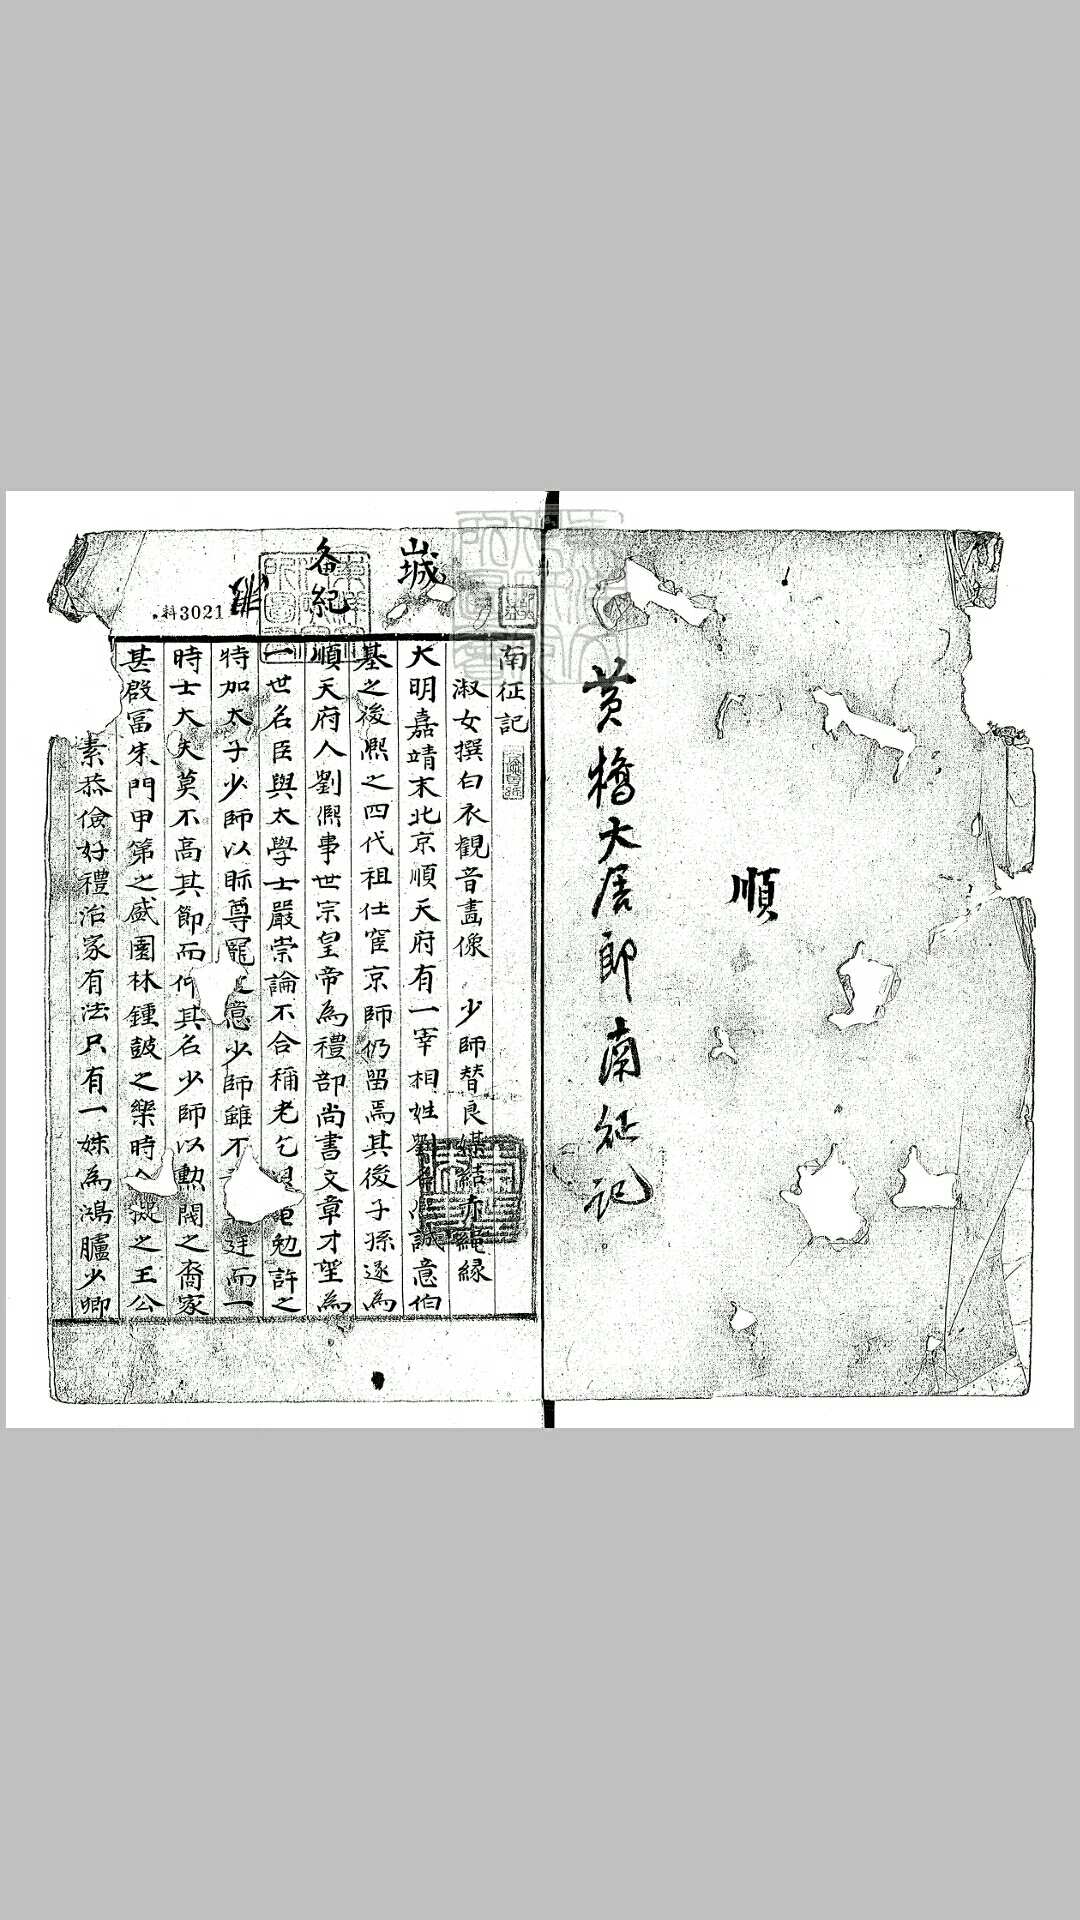 順
黃橋大居郎南征記
南征記
淑女撰白衣觀音畫像 少師替良媒結赤繩緣
大明嘉靖末北京順天府有一宰相姓劉名熙誠意伯
基之後熙之四代祖仕宦京師仍留焉其後子孫遂為
順天府人劉熙事世宗皇帝為禮部尚書文章才望為
一世名臣與太學士嚴崇論不合稱老乞勉許之
特加太子少師以眎尊寵意少師雖不廷而一
時士大夫莫不高其節而仰其名少師以勳閥之裔家
甚殷冨朱門甲第之盛園林鍾皷之樂時人擬之王公
素恭儉好禮治家有法只有一妹為鴻臚少卿
城
备紀
料3021